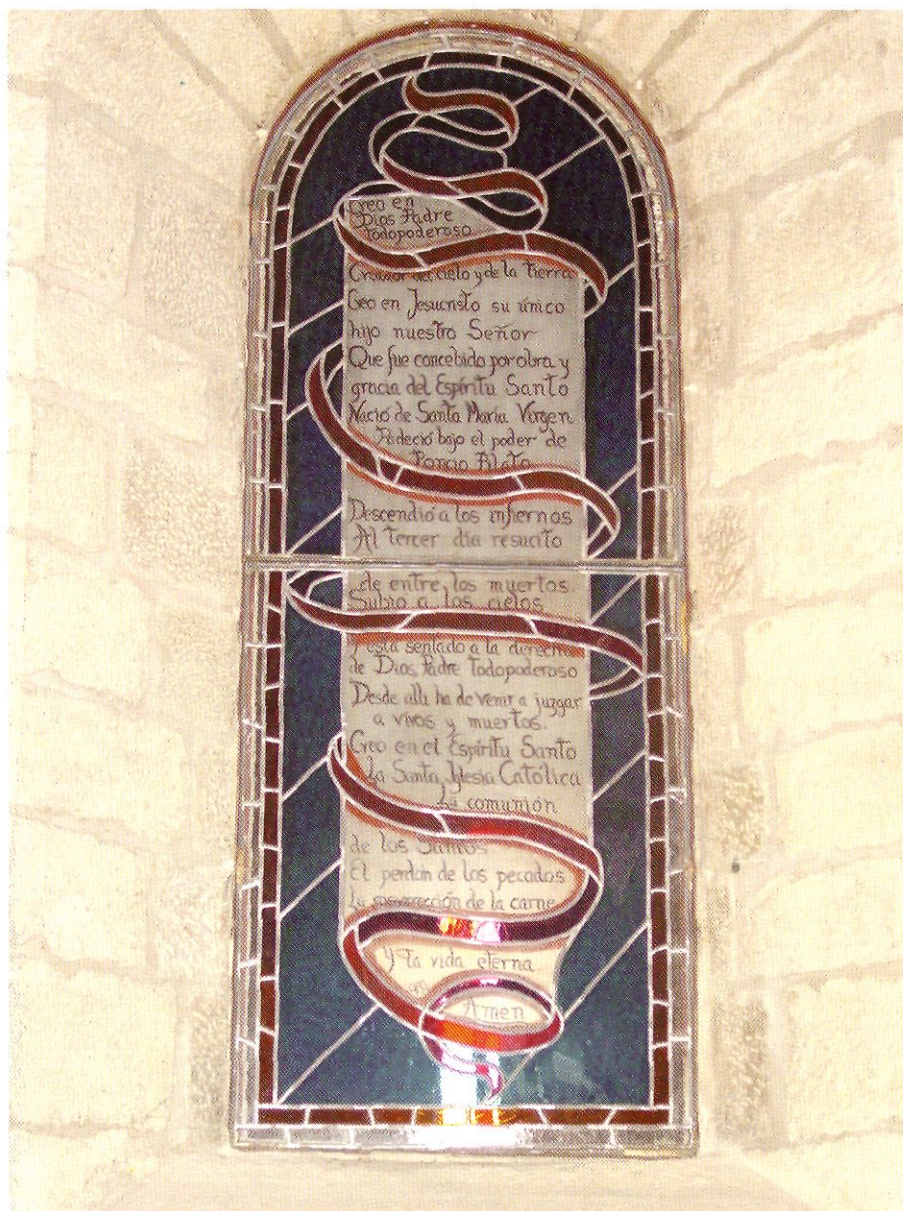 Creo en
Dios Padre
Todopoderoso
Creador del cielo y de la Tierra
Creo en Jesucristo su único
hijo nuestro Señor
Que fue concebido por obra y
gracia del Espíritu Santo
Nacio de Santa Maria Virgen
Padeció bajo el poder de
Poncio Pilato
Descendió a los infiernos
Al tercer dia resucito
de entre los muertos.
Subio a los cielos
Y esta sentado a la derecha
de Dios Padre Todopoderoso
Desde alli ha de venir a juzgar
a vivos y muertos.
Creo en el Espíritu Santo
La Santa Iglesia Católica
La comunión
de los Santos
El perdon de los pecados
La resurrección de la carne
Y la vida eterna
Amen